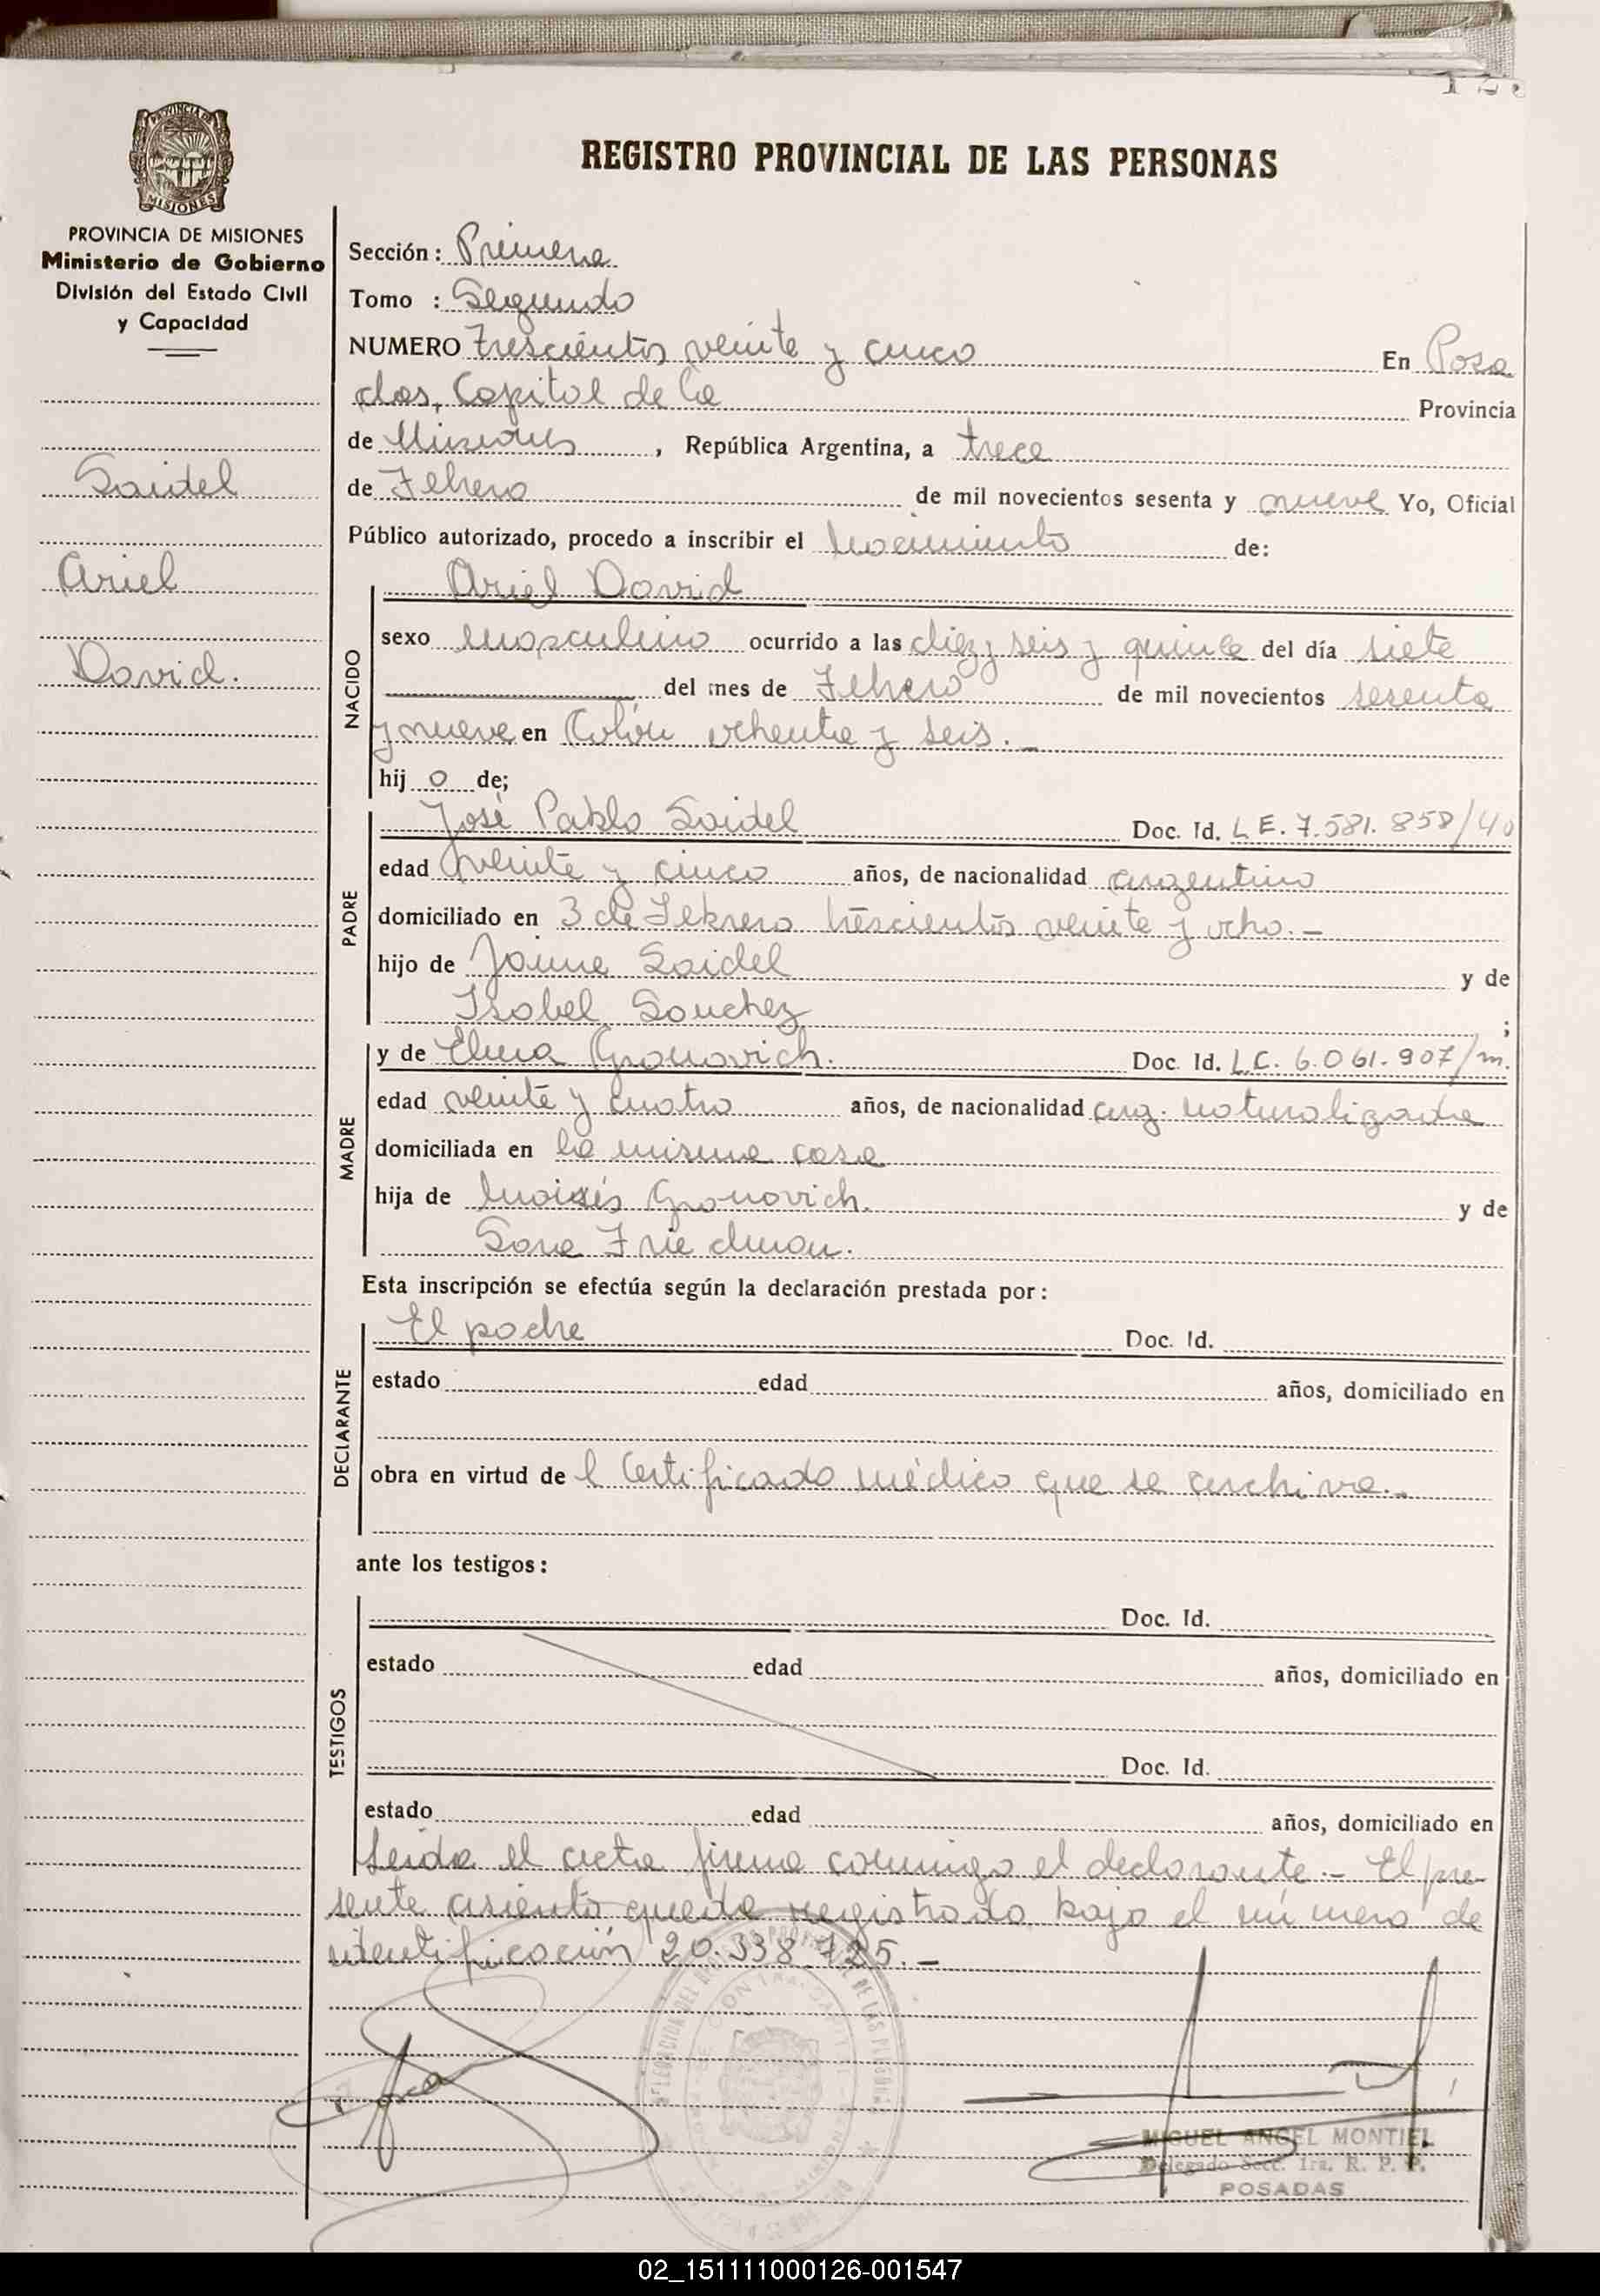 PROVINCIA DE MISIONES
Ministerio de Gobierno
División del Estado Civil
y Capacidad
Saidel
Ariel
David.
REGISTRO PROVINCIAL DE LAS PERSONAS
Sección: Primera
Tomo : Segundo
NUMERO trescientos veinte y cinco En Posa
das, Capital de la Provincia
de Misiones, República Argentina, a trece
de Febrero de mil novecientos sesenta y nueve Yo, Oficial
Público autorizado, procedo a inscribir el Nacimiento de:
NACIDO
Ariel David
sexo masculino ocurrido a las diez y seis y quince del día siete
del mes de Febrero de mil novecientos sesenta
y nueve en Colón ochenta y seis.-
hij o de;
PADRE
José Pablo Saidel Doc. Id. L E. 7.581.858/40
edad veinte y cinco años, de nacionalidad argentino
domiciliado en 3 de Febrero trescientos veinte y ocho.-
hijo de Jaime Saidel y de
Isabel Sanchez ;
MADRE
y de Elena Gronovich. Doc. Id. L.C. 6.061.907/m.
edad veinte y cuatro años, de nacionalidad arg. naturalizada
domiciliada en la misma casa
hija de Moisés Gronovich. y de
Sara Friedman.
Esta inscripción se efectúa según la declaración prestada por:
DECLARANTE
El padre Doc. Id.
estado edad años, domiciliado en
obra en virtud de l Certificado médico que se archiva.-
ante los testigos:
TESTIGOS
Doc. Id.
estado edad años, domiciliado en
Doc. Id.
estado edad años, domiciliado en
Leida el acta firma conmigo el declarante.- El pre-
sente asiento queda registrado bajo el número de
identificación 20.338.725.-
MIGUEL ANGEL MONTIEL
Delegado Secc. 1ra. R. P. P.
POSADAS
02_151111000126-001547